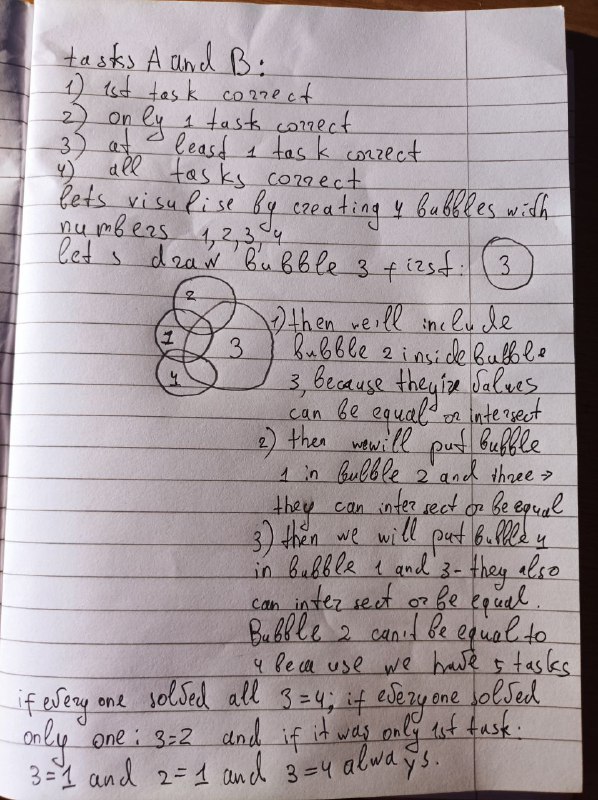 tasks A and B:
1) 1st task correct
2) only 1 task correct
3) at least 1 task correct
4) all tasks correct
lets visulise by creating 4 bubbles with
numbers 1,2,3,4
let s draw bubble 3 first: 3
2
1
3
4
1) then we'll include
bubble 2 inside bubble
3, because they're values
can be equal or intersect
2) then we will put bubble
1 in bubble 2 and three →
they can intersect or be equal
3) then we will put bubble 4
in bubble 1 and 3 - they also
can intersect or be equal.
Bubble 2 can't be equal to
4 because we have 5 tasks
if everyone solved all 3=4; if everyone solved
only one: 3=2 and if it was only 1st task:
3=1 and 2=1 and 3=4 always.